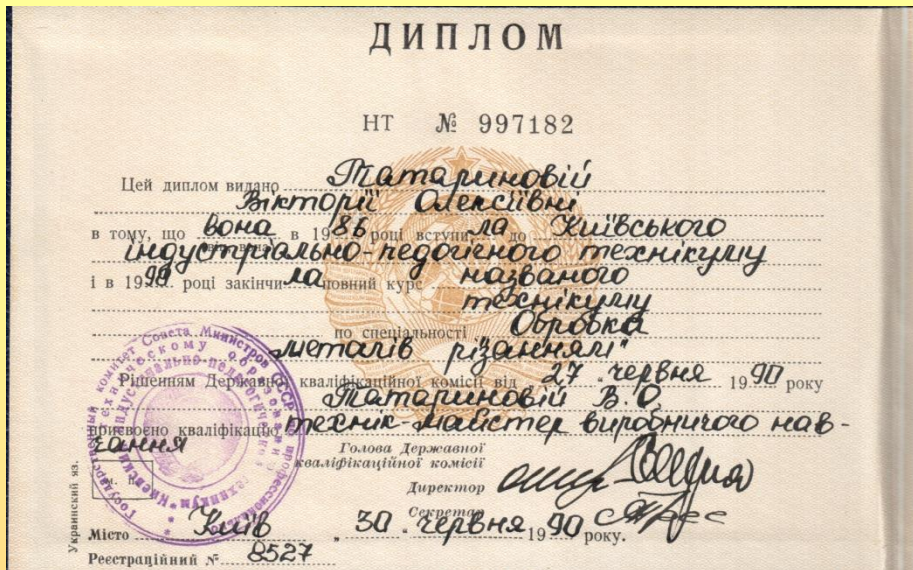 ДИПЛОМ
НТ № 997182
Цей диплом видано Татариновій
Вікторії Олексіївні
в тому, що вона в 1986 році вступила до Київського
індустріально-педогічного технікуму
і в 1990 році закінчила повний курс названого
технікуму
по спеціальності „Обробка
металів різанням"
Рішенням Державної кваліфікаційної комісії від 27 червня 1990 року
Татариновій В.О
присвоєно кваліфікацію технік-майстер виробничого нав-
чання
Голова Державної
кваліфікаційної комісії
Директор
Секретар
Місто Київ „30 червня 1990 року.
Реєстраційний № 8527
Украинский яз.
М. П.
Государственный комитет Совета Министров СССР по профессионально-техническому образованию
Киевский индустриально-педагогический техникум